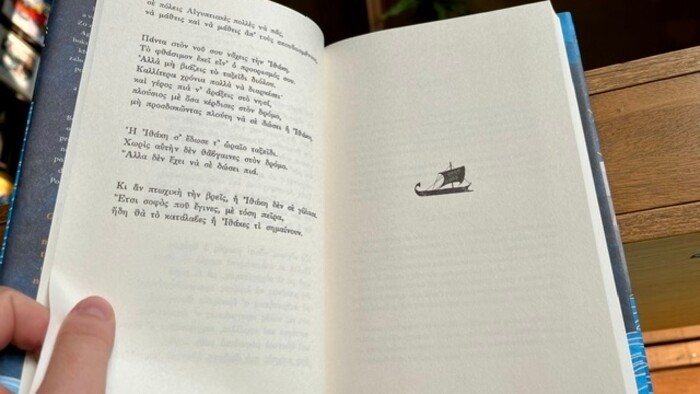 σὲ πόλεις Αἰγυπτιακὲς πολλὲς νὰ πᾶς,
νὰ μάθεις καὶ νὰ μάθεις ἀπ' τοὺς σπουδασμένους.
Πάντα στὸν νοῦ σου νἄχεις τὴν Ἰθάκη.
Τὸ φθάσιμον ἐκεῖ εἶν' ὁ προορισμός σου.
Ἀλλὰ μὴ βιάζεις τὸ ταξεῖδι διόλου.
Καλλίτερα χρόνια πολλὰ νὰ διαρκέσει·
καὶ γέρος πιὰ ν' ἀράξεις στὸ νησί,
πλούσιος μὲ ὅσα κέρδισες στὸν δρόμο,
μὴ προσδοκῶντας πλούτη νὰ σὲ δώσει ἡ Ἰθάκη.
Ἡ Ἰθάκη σ' ἔδωσε τ' ὡραῖο ταξεῖδι.
Χωρὶς αὐτὴν δὲν θἄβγαινες στὸν δρόμο.
Ἄλλα δὲν ἔχει νὰ σὲ δώσει πιά.
Κι ἂν πτωχικὴ τὴν βρεῖς, ἡ Ἰθάκη δὲν σὲ γέλασε.
Ἔτσι σοφὸς ποὺ ἔγινες, μὲ τόση πεῖρα,
ἤδη θὰ τὸ κατάλαβες ἡ Ἰθάκες τί σημαίνουν.